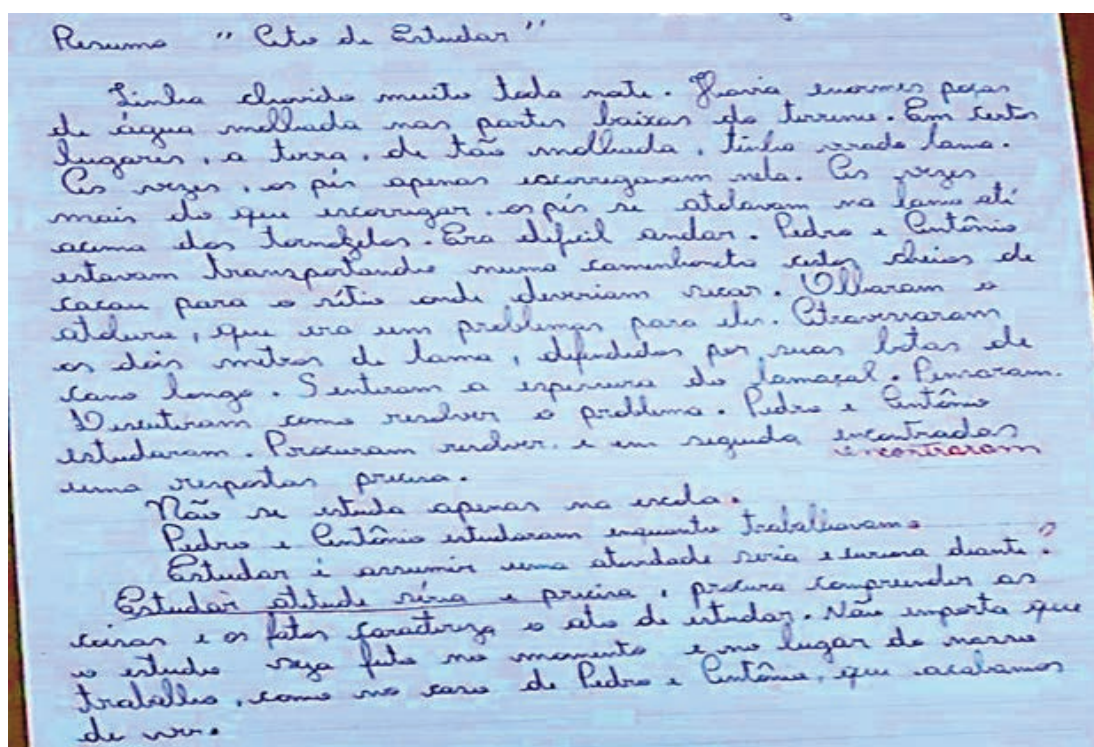 Resumo " Ato de Estudar "
Tinha chovido muito toda noite. Havia enormes poças
de água molhada nas partes baixas do terreno. Em certos
lugares, a terra, de tão molhada, tinha virado lama.
As vezes, os pés apenas escorregavam nela. As vezes
mais do que escorregar. os pés se atolavam na lama até
acima dos tornozelos. Era difícil andar. Pedro e Antônio
estavam transportando numa caminhoneta cestos cheios de
cacau para o sítio onde deveriam secar. Olharam o
atoleiro, que era um problemas para eles. Atravessaram
os dois metros de lama, defendidos por suas botas de
cano longo. Sentiram a espessura do lamaçal. Pensaram.
Discutiram como resolver o problema. Pedro e Antônio
estudaram. Procuram resolver. e em seguida encontradas
encontraram
uma respostas precisa.
Não se estuda apenas na escola.
Pedro e Antônio estudaram enquanto trabalhavam.
Estudar é assumir uma seria e curiosa diante ?
Estudar atitude séria e precisa, procura compreender as
coisas e os fatos caracteriza o ato de estudar. Não importa que
o estudo seja feito no momento e no lugar do nosso
trabalho, como no caso de Pedro e Antônio, que acabamos
de ver.